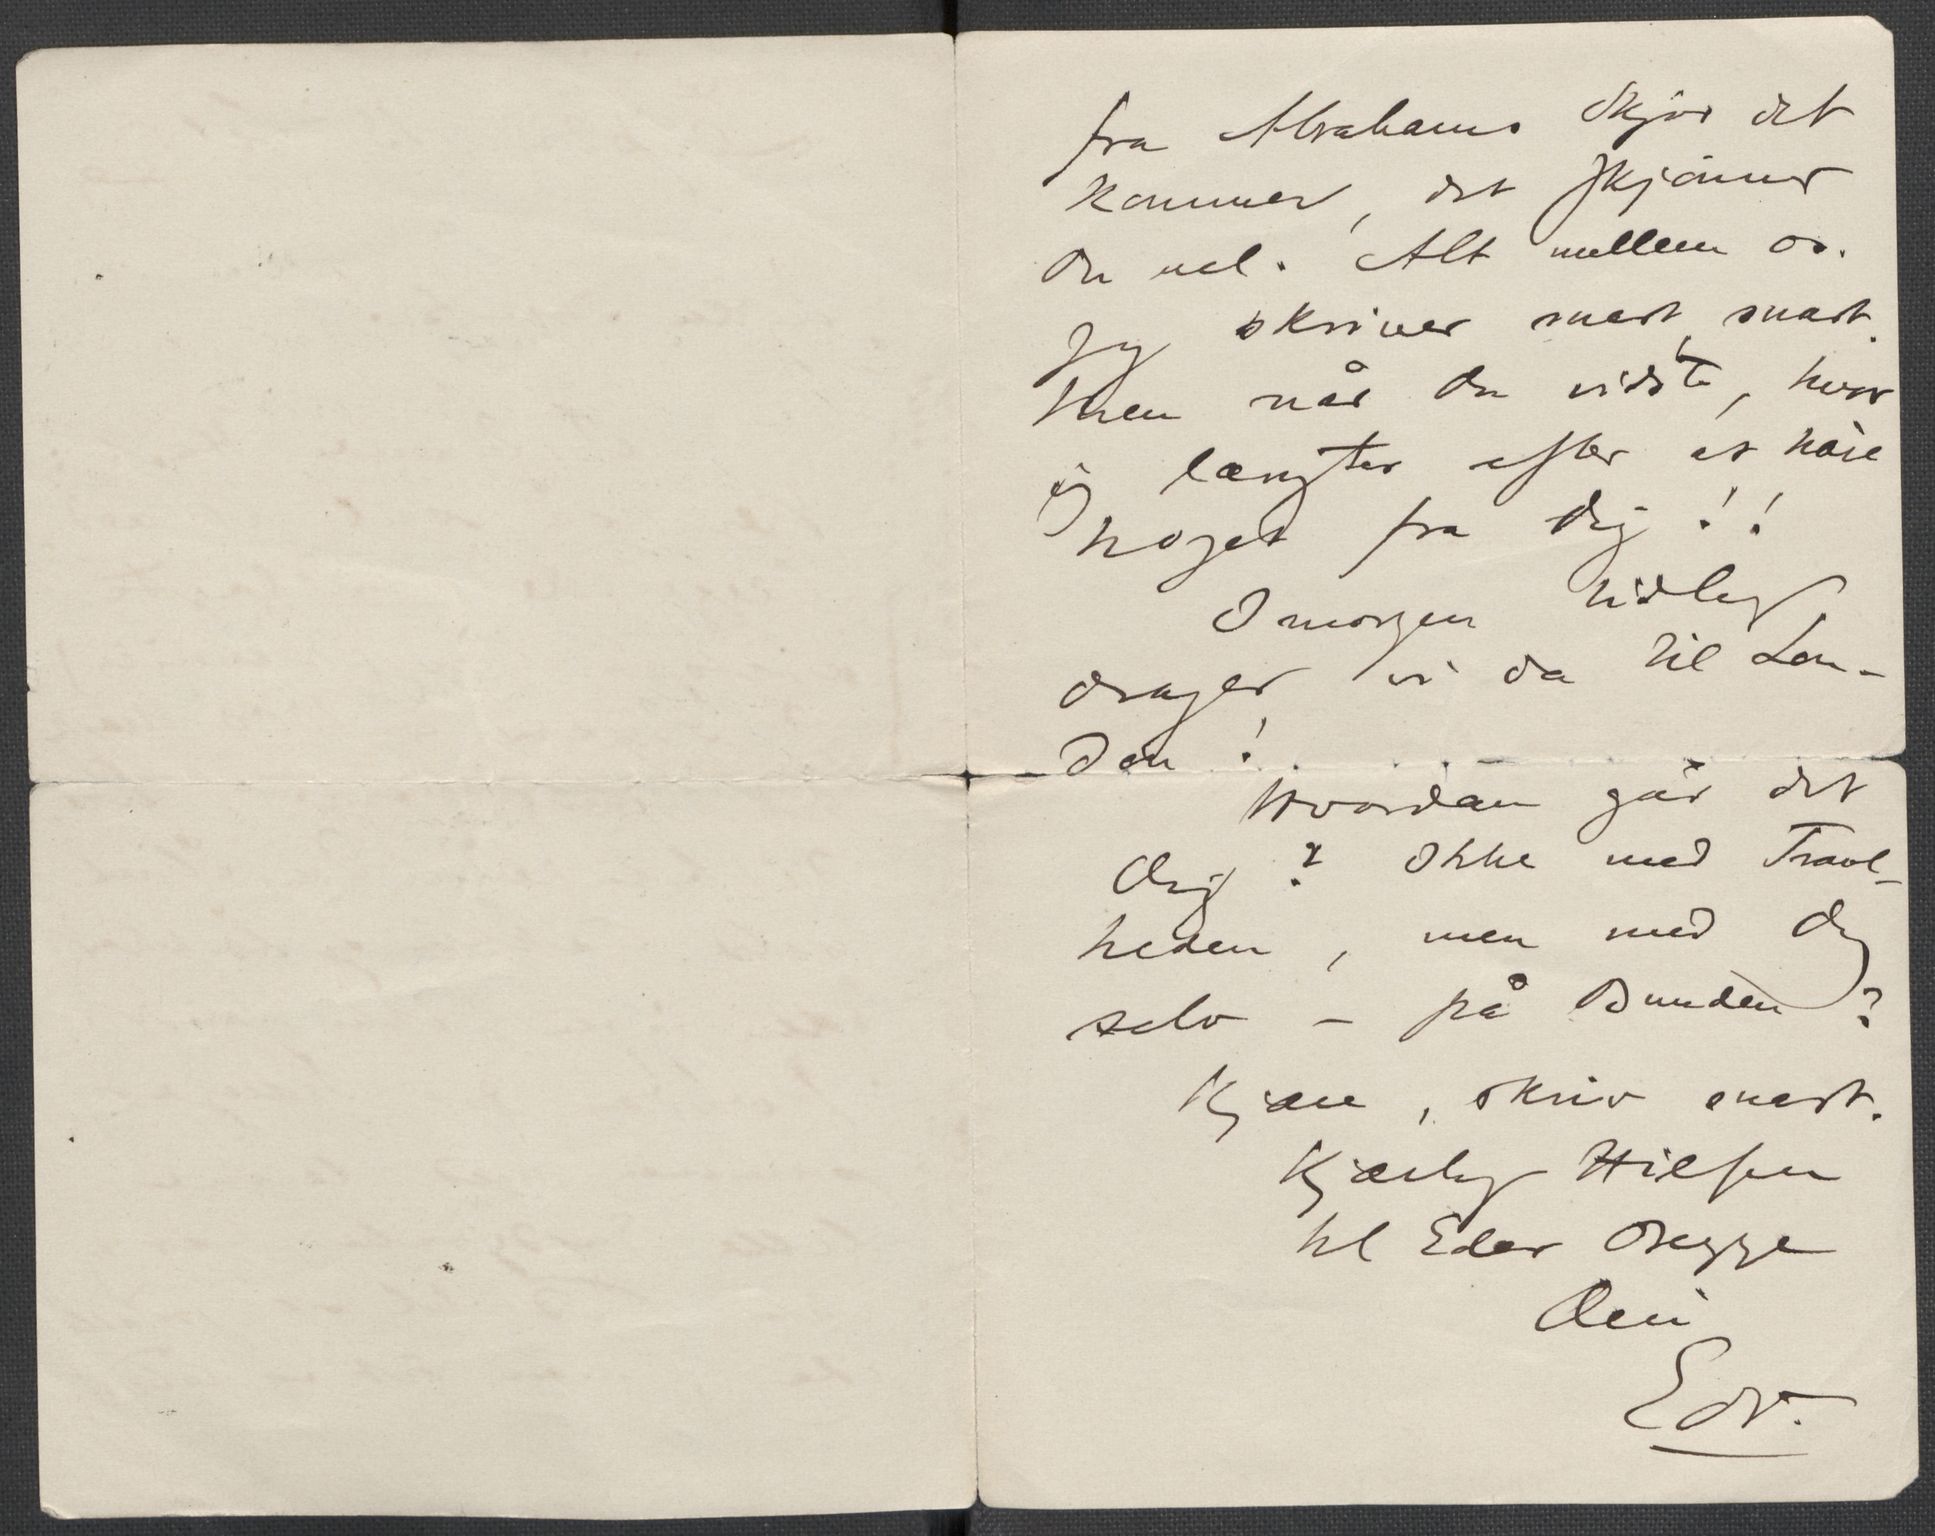 fra Abrahams Skjød det
kommer, det skjønner
Du vel. Alt mellem os.
Jeg skriver snart, snart.
Men når Du vidste, hvor
jeg længter efter at høre
noget fra Dig!!
Imorgen tidlig
drager vi da til Lon-
don!
Hvordan går det
Dig? Ikke med Travl-
heden, men med Dig
selv – på Bunden?
Kjære, skriv snart.
Kjærlig Hilsen
til Eder Begge
Din
Edv.